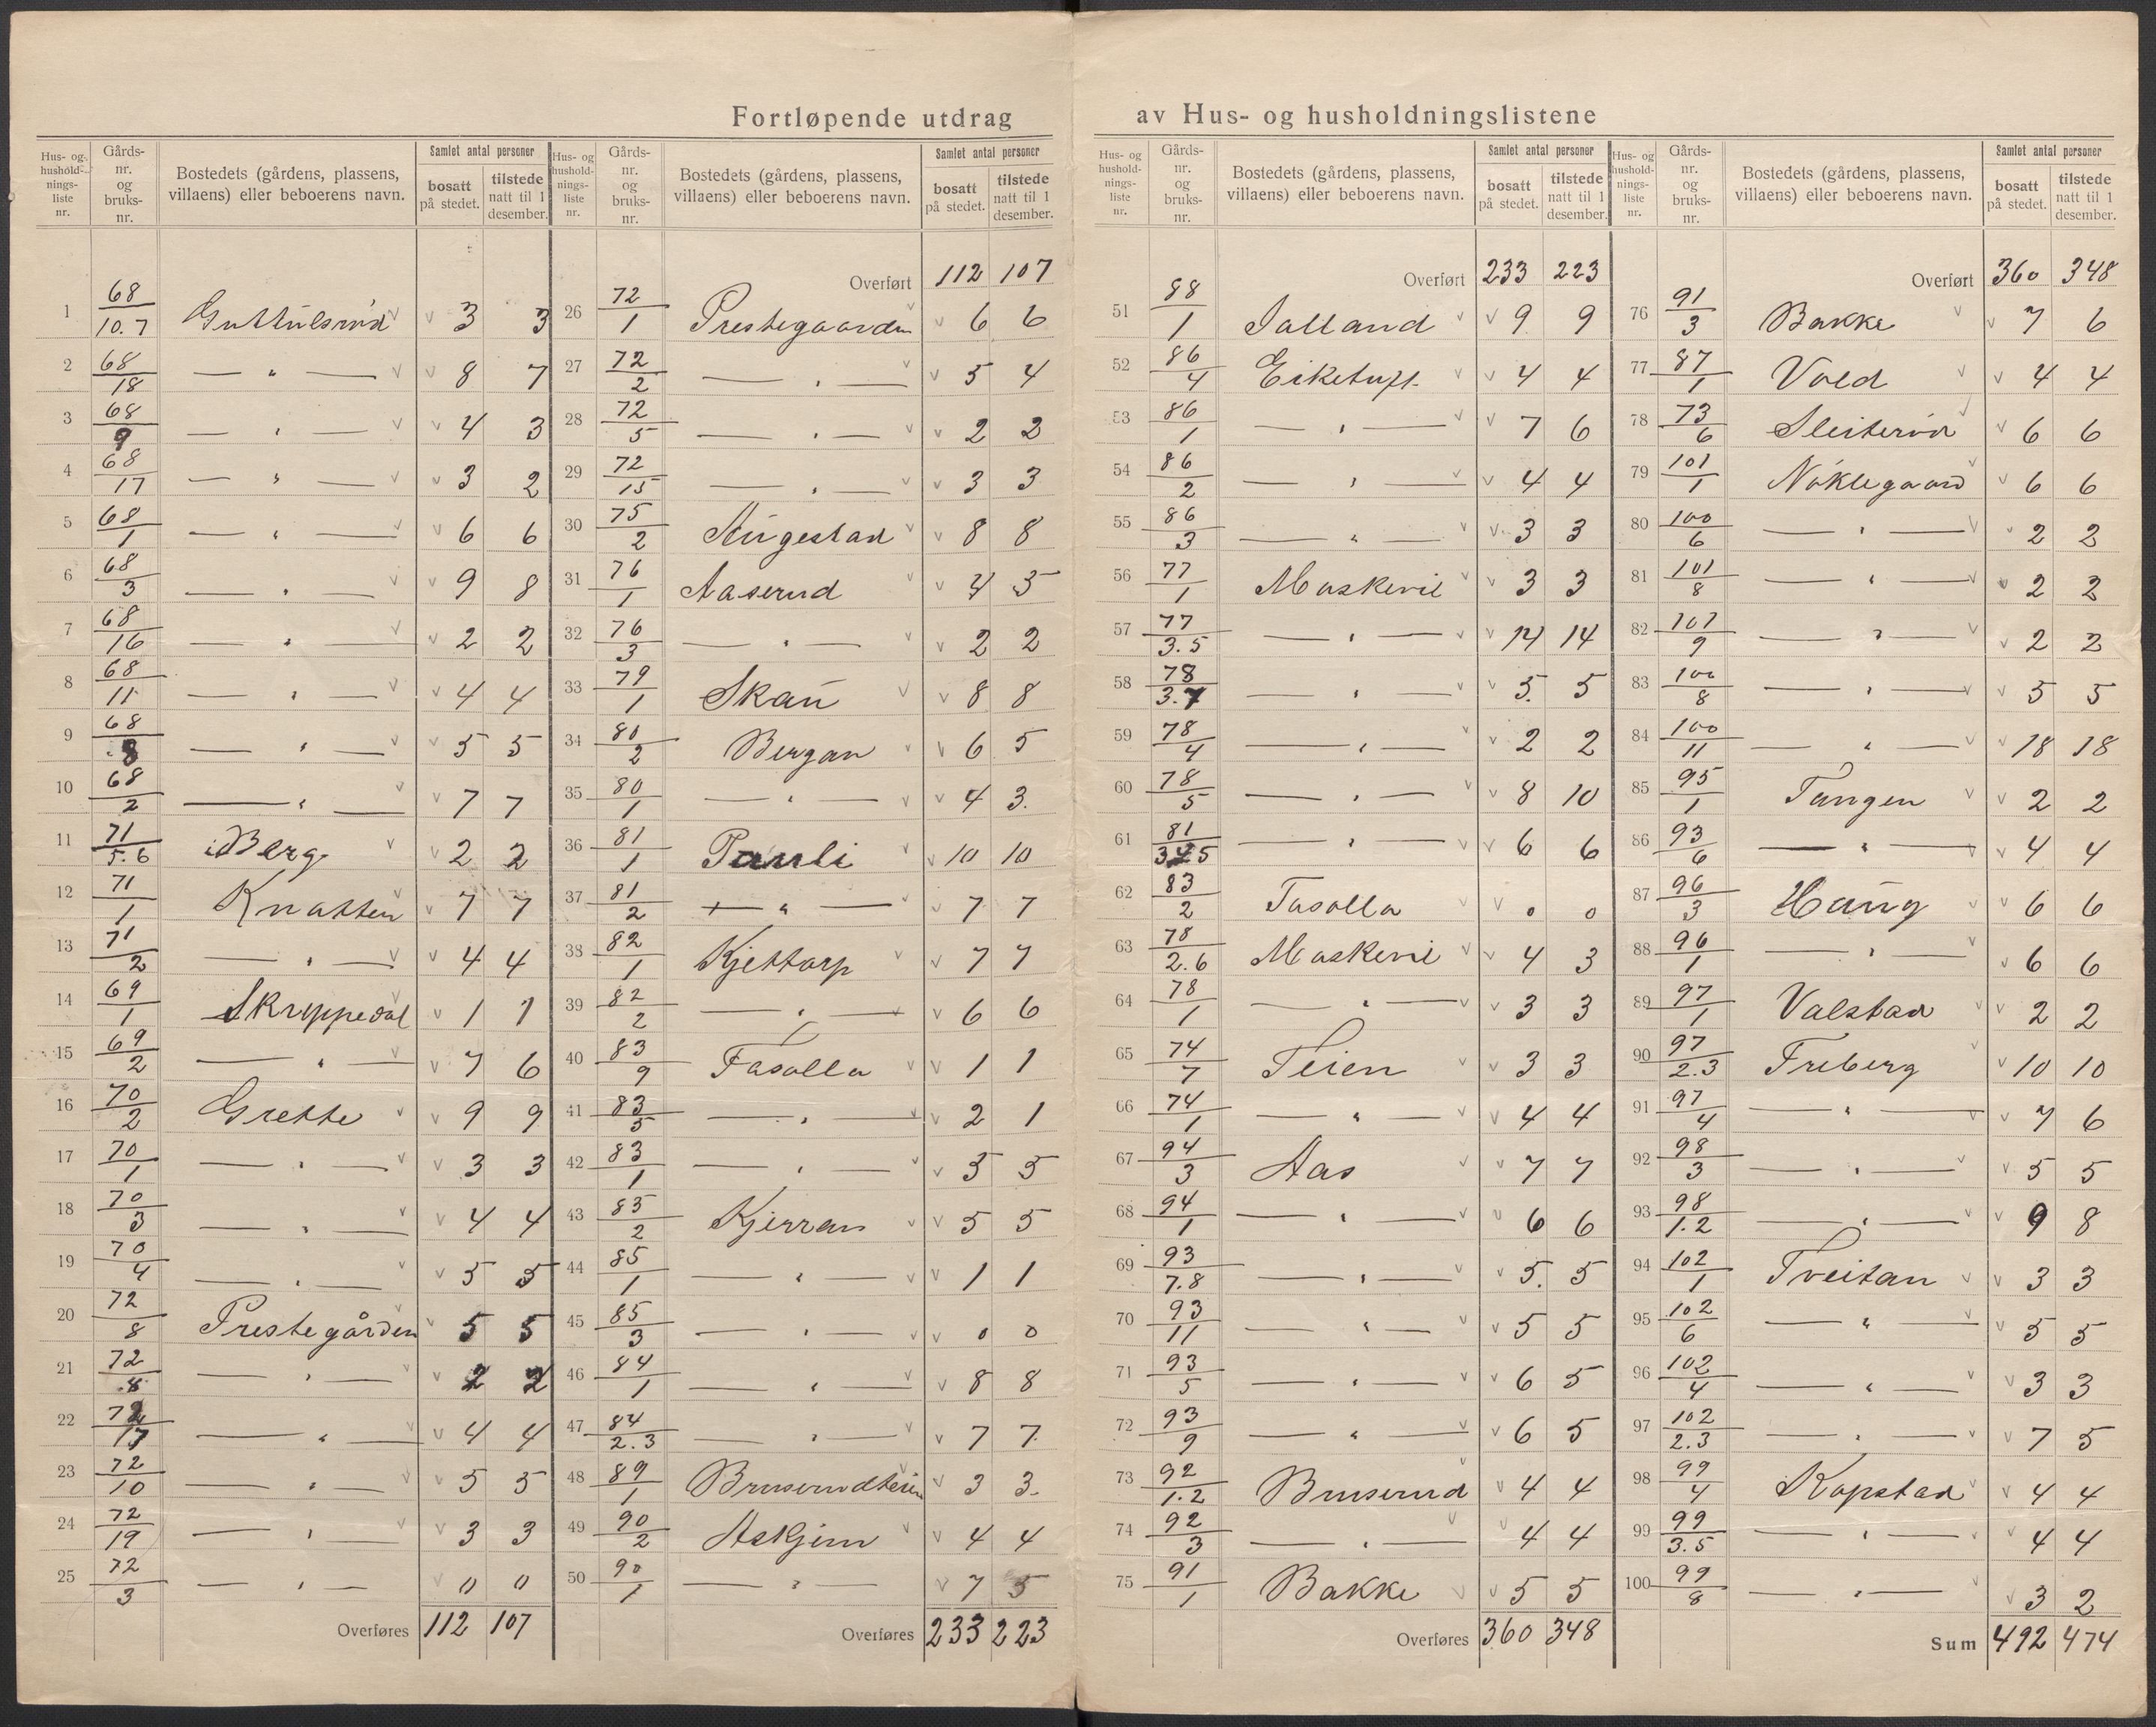 Fortløpende utdrag av Hus- og husholdningslistene
Hus- og hushold-nings-liste nr. | Gårds-nr. og bruks-nr. | Bostedets (gårdens, plassens, villaens) eller beboerens navn. | Samlet antal personer | bosatt på stedet. | tilstede natt til 1 desember.
1 68/10.7 Guttulsrud 3 3
2 68/18 — " — 8 7
3 68/9 — " — 4 3
4 68/17 — " — 3 2
5 68/1 — " — 6 6
6 68/3 — " — 9 8
7 68/16 — " — 2 2
8 68/11 — " — 4 4
9 68/8 — " — 5 5
10 68/2 — " — 7 7
11 71/5.6 Berg 2 2
12 71/1 Knatten 7 7
13 71/2 — " — 4 4
14 69/1 Skryppedal 1 1
15 69/2 — " — 7 6
16 70/2 Grette 9 9
17 70/1 — " — 3 3
18 70/3 — " — 4 4
19 70/4 — " — 5 5
20 72/8 Prestegården 5 5
21 72/8 — " — 2 2
22 72/17 — " — 4 4
23 72/10 — " — 5 5
24 72/19 — " — 3 3
25 72/3 — " — 0 0
Overføres 112 107
Hus- og hushold-nings-liste nr. | Gårds-nr. og bruks-nr. | Bostedets (gårdens, plassens, villaens) eller beboerens navn. | Samlet antal personer | bosatt på stedet. | tilstede natt til 1 desember.
Overført 112 107
26 72/1 Prestegaarden 6 6
27 72/2 — " — 5 4
28 72/5 — " — 2 2
29 72/15 — " — 3 3
30 75/2 Augestad 8 8
31 76/1 Aaserud 4 5
32 76/3 — " — 2 2
33 79/1 Skau 8 8
34 80/2 Bergan 6 5
35 80/1 — " — 4 3
36 81/1 Pauli 10 10
37 81/2 — " — 7 7
38 82/1 Kjettorp 7 7
39 82/2 — " — 6 6
40 83/9 Fasolla 1 1
41 83/5 — " — 2 1
42 83/1 — " — 5 5
43 85/2 Kjerran 5 5
44 85/1 — " — 1 1
45 85/3 — " — 0 0
46 84/1 — " — 8 8
47 84/2.3 — " — 7 7
48 89/1 Bruserudteien 3 3
49 90/2 Askjem 4 4
50 90/1 — " — 7 5
Overføres 233 223
Hus- og hushold-nings-liste nr. | Gårds-nr. og bruks-nr. | Bostedets (gårdens, plassens, villaens) eller beboerens navn. | Samlet antal personer | bosatt på stedet. | tilstede natt til 1 desember.
Overført 233 223
51 88/1 Jalland 9 9
52 86/4 Eiketuft 4 4
53 86/1 — " — 7 6
54 86/2 — " — 4 4
55 86/3 — " — 3 3
56 77/1 Maskerie 3 3
57 77/3.5 — " — 14 14
58 78/3.7 — " — 5 5
59 78/4 — " — 2 2
60 78/5 — " — 8 10
61 81/345 — " — 6 6
62 83/2 Fasolla 0 0
63 78/2.6 Maskerie 4 3
64 78/1 — " — 3 3
65 74/7 Teien 3 3
66 74/1 — " — 4 4
67 94/3 Aas 7 7
68 94/1 — " — 6 6
69 93/7.8 — " — 5 5
70 93/11 — " — 5 5
71 93/5 — " — 6 5
72 93/9 — " — 6 5
73 92/1.2 Bruserud 4 4
74 92/3 — " — 4 4
75 91/1 Bakke 5 5
Overføres 360 348
Hus- og hushold-nings-liste nr. | Gårds-nr. og bruks-nr. | Bostedets (gårdens, plassens, villaens) eller beboerens navn. | Samlet antal personer | bosatt på stedet. | tilstede natt til 1 desember.
Overført 360 348
76 91/3 Bakke 7 6
77 87/1 Vold 4 4
78 73/6 Sleiterød 6 6
79 101/1 Nøklegaard 6 6
80 100/6 — " — 2 2
81 101/8 — " — 2 2
82 101/9 — " — 2 2
83 100/8 — " — 5 5
84 100/11 — " — 18 18
85 95/1 Tangen 2 2
86 93/6 — " — 4 4
87 96/3 Haug 6 6
88 96/1 — " — 6 6
89 97/1 Valstad 2 2
90 97/2.3 Freberg 10 10
91 97/4 — " — 7 6
92 98/3 — " — 5 5
93 98/1.2 — " — 9 8
94 102/1 Tveitan 3 3
95 102/6 — " — 5 5
96 102/4 — " — 3 3
97 102/2.3 — " — 7 5
98 99/4 Kopstad 4 4
99 99/3.5 — " — 4 4
100 99/8 — " — 3 2
Sum 492 474